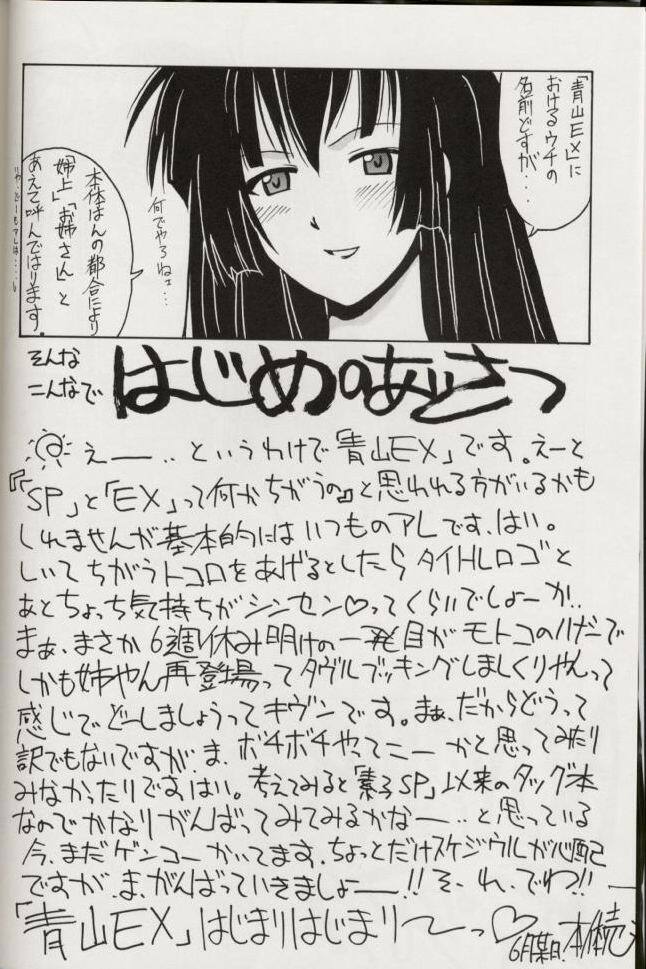 「青山EX」に
おけるウチの
名前どすが・・
何でやろねェ・・・
本体はんの都合により
「姉上」「お姉さん」と
あえて呼んではります。
そんな
こんなで
はじめのあいさつ
えー・・・というわけで「青山EX」です。えーと
『「SP」と「EX」って何かちがうの』と思われる方がいるかも
しれませんが基本的にはいつものアレです、はい。
しいてちがうトコロをあげるとしたらタイトルロゴと
あとちょっち気持ちがシンセン♡ってくらいでしょーか・・
まぁ、まさか6週休み明けの一発目がモトコのハダーで
しかも姉やん再登場ってダヴルブッキングしまくりやんって
感じでどーしましょうってキヴンです。まぁ、だからどうって
訳でもないですが、ま、ボチボチやってこーかと思ってみたり
みなかったりですはい。考えてみると「素子SP」以来のタッグ本
なのでかなりがんばってみてみるかなー・・と思っている
今、まだゲンコーかいてます、ちょっとだけスケジウルが心配
ですが、ま、がんばっていきましょー!!そ、れ、でわ!!
「青山EX」はじまりはじまり〜っ♡
6月某日、本体売